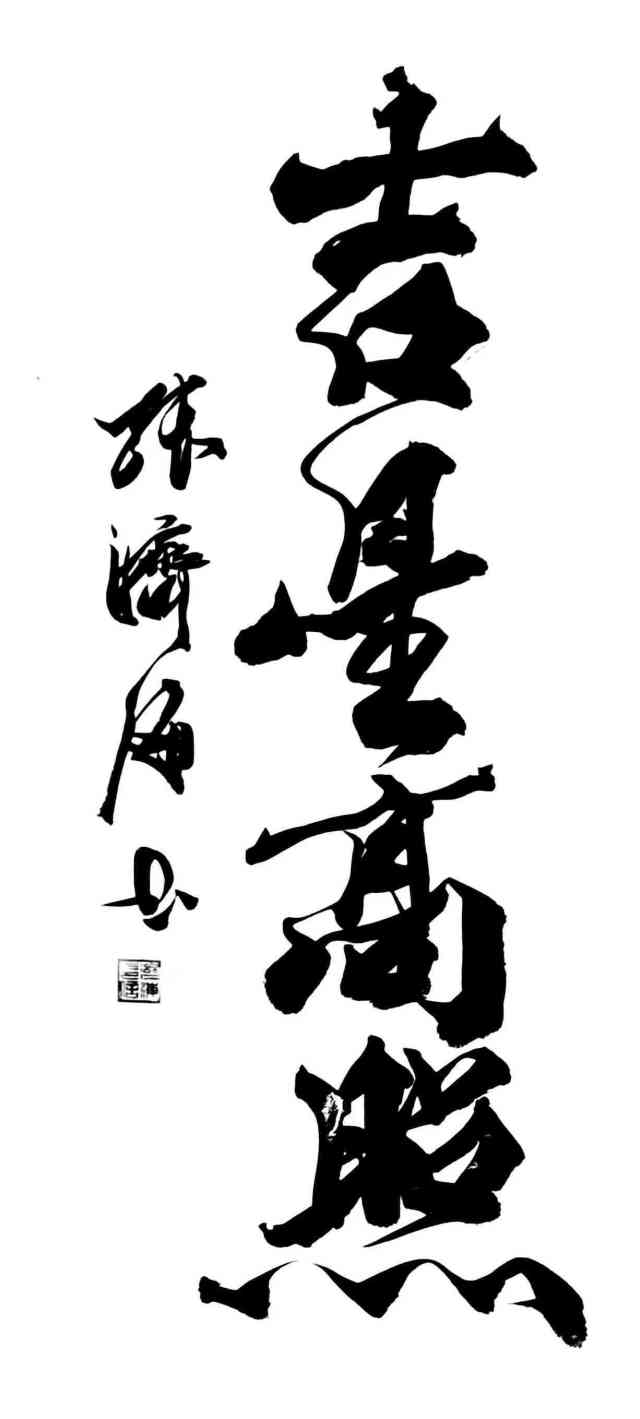 吉星高照
張濟海书